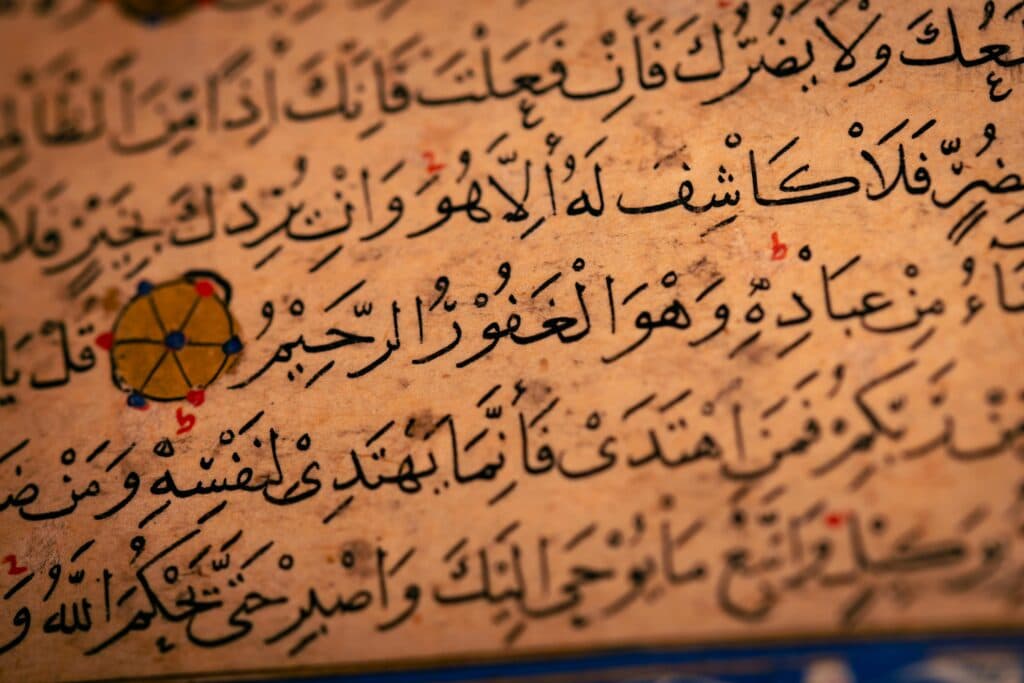 ـفَعُكَ وَلَا يَضُرُّكَ فَاِنْ فَعَلْتَ فَاِنَّكَ اِذًا مِنَ الظَّالِمـ
بِضُرٍّ فَلَا كَاشِفَ لَهُ أِلَّا هُوَ وَاِنْ يُرِدْكَ بِخَيْرٍ فَلَا
ـشَآءُ مِنْ عِبَادِهِ ط وَهْوَ الْغَفُورُ الرَّحِيْمُ قُلْ يَا
مِنْ رَبِّكُمْ فَمَنِ اهْتَدَىْ فَأِنَّمَا يَهْتَدِىْ لِنَفْسِهِ ط وَمَنْ ضَـ
بِوَكِيلٍ وَاتَّبِعْ مَا يُوْحَى اِلَيْكَ وَاصْبِرْ حَتَّى يَحْكُمَ اللّٰهُ وَ